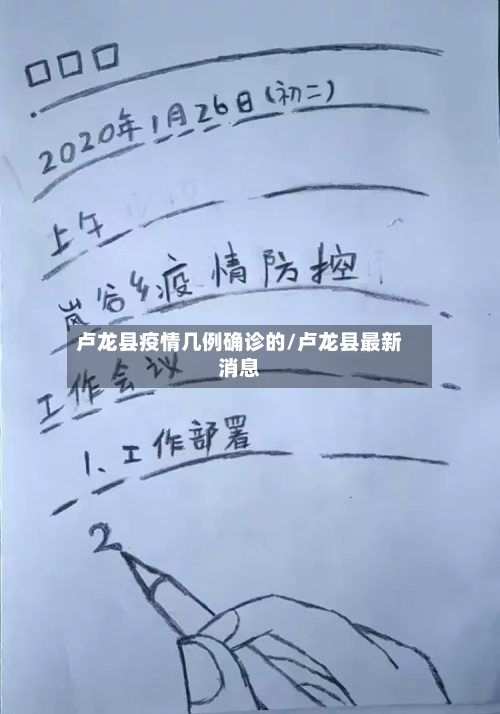 2020年1月26日(初二)
上午
岚谷乡疫情防控
卢龙县疫情几例确诊的/卢龙县最新
消息
工作会议
1、工作部署
2